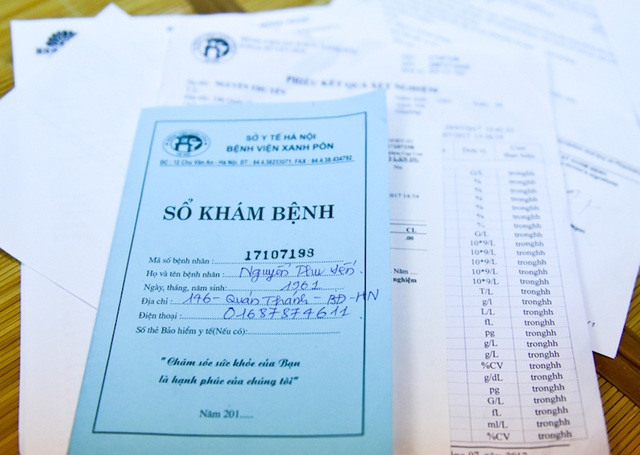 PHIẾU KẾT QUẢ XÉT NGHIỆM
SỞ Y TẾ HÀ NỘI
BỆNH VIỆN XANH PÔN
ĐC : 12 Chu Văn An - Hà Nội, ĐT : 84.4.38233071, FAX : 84.4.38.434792
SỔ KHÁM BỆNH
Mã số bệnh nhân : 17107198
Họ và tên bệnh nhân : Nguyễn Thu Yến
Ngày, tháng, năm sinh: 1961
Địa chỉ : 146 - Quán Thánh - BĐ - HN
Điện thoại : 01687874611
Số thẻ Bảo hiểm y tế(Nếu có):
"Chăm sóc sức khỏe của Bạn
là hạnh phúc của chúng tôi"
Năm 201.....
G/L tronghh
% tronghh
% tronghh
% tronghh
% tronghh
% tronghh
G/L tronghh
10*9/L tronghh
10*9/L tronghh
10*9/L tronghh
10*9/L tronghh
10*9/L tronghh
T/L tronghh
g/l tronghh
L/L tronghh
fL tronghh
pg tronghh
g/L tronghh
g/L tronghh
%CV tronghh
g/dL tronghh
pg tronghh
G/L tronghh
fL tronghh
ml/L tronghh
%CV tronghh